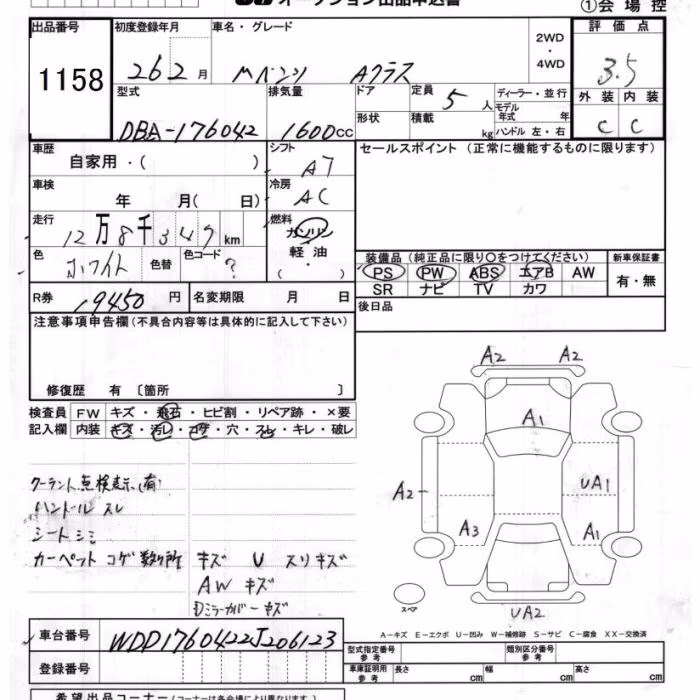 オークション出品申込書
①会場控
出品番号
1158
初度登録年月
26 2 月
車名・グレード
Mベンツ Aクラス
2WD
・
4WD
評価点
3.5
外装 内装
C C
型式
DBA-176042
排気量
1600cc
ドア
形状
定員 5 人
積載 kg
ディーラー・並行
モデル年式 年
ハンドル 左・右
車歴
自家用・( )
シフト
A7
セールスポイント (正常に機能するものに限ります)
車検
年 月( 日)
冷房
AC
走行
12万8千347km
燃料
ガソリン
軽油
( ・ )
色
ホワイト
色替
色コード
?
装備品 (純正品に限り〇をつけてください)
新車保証書
PS PW ABS エアB AW
SR ナビ TV カワ
有・無
R券
19450円
名変期限 月 日
後日品
注意事項申告欄 (不具合内容等は具体的に記入して下さい)
修復歴 有 〔箇所 〕
検査員
記入欄
FW キズ・飛石・ヒビ割・リペア跡・×要
内装 キズ・汚レ・コゲ・穴・スレ・キレ・破レ
クーラント点検表示(有)
ハンドル スレ
シート シミ
カーペット コゲ 数ケ所
キズ U スリキズ
AW キズ
Dミラーカバーキズ
A2 A2
A1
A2
UA1
A3
A1
UA2
スペア
A-キズ E-エクボ U-凹み W-補修跡 S-サビ C-腐食 XX-交換済
車台番号
WDD1760422J206123
登録番号
型式指定番号
参考
類別区分番号
参考
車庫証明用
参考
長さ cm 幅 cm 高さ cm
希望出品コーナー (コーナーは各会場により異なります。)